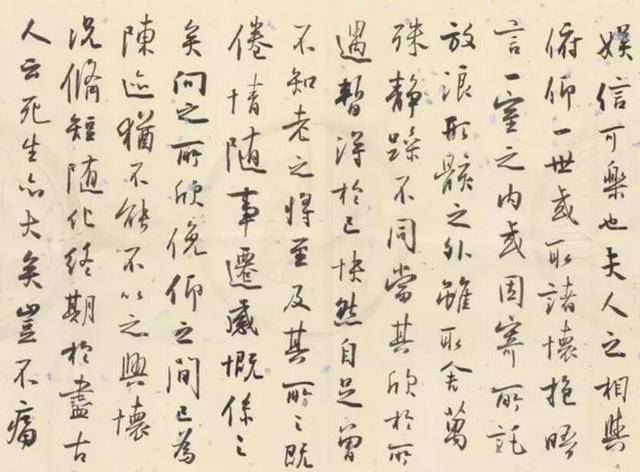 娛信可樂也夫人之相與
俯仰一世或取諸懷抱晤
言一室之內或因寄所託
放浪形骸之外雖取舍萬
殊靜躁不同當其欣於所
遇暫得於己快然自足曾
不知老之將至及其所之既
倦情隨事遷感慨係之
矣向之所欣俛仰之間已為
陳迹猶不能不以之興懷
況脩短隨化終期於盡古
人云死生亦大矣豈不痛